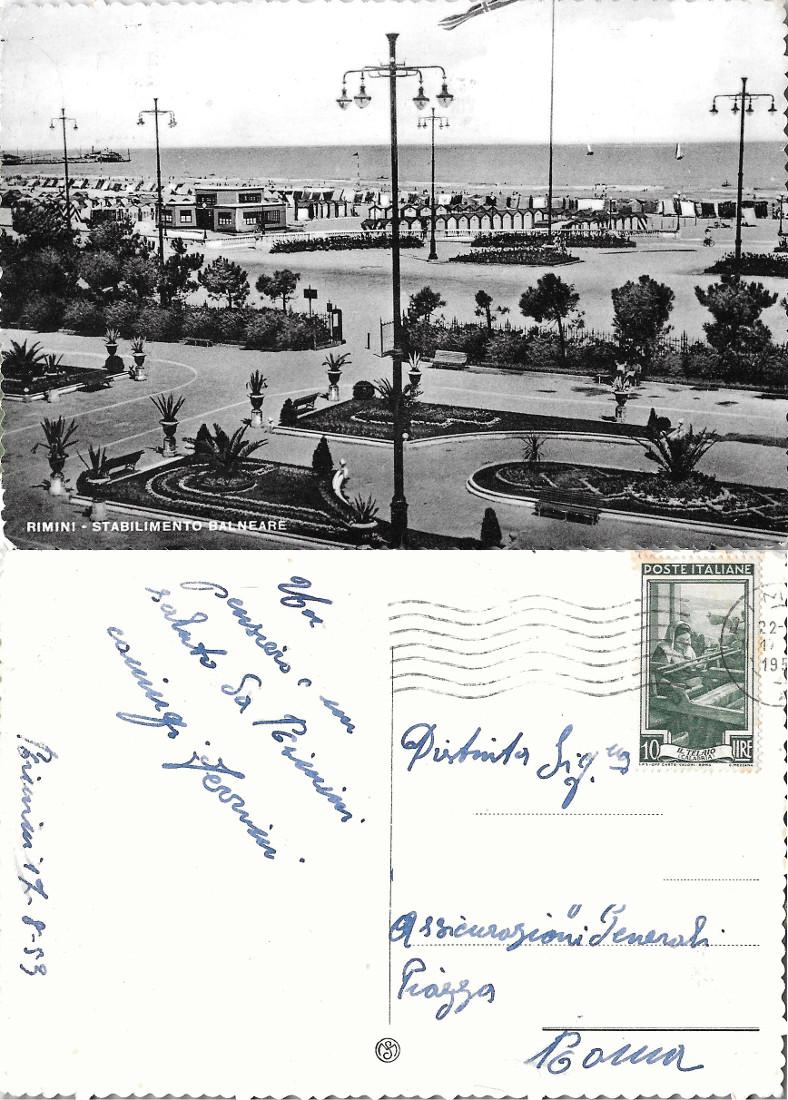 RIMINI - STABILIMENTO BALNEARE
Un
Pensiero e un
saluto da Rimini
Rimini 17-8-53
POSTE ITALIANE
22-
17
195
10 IL TELAIO LIRE
(CALABRIA)
Distinta Sig.na
Assicurazioni Generali
Piazza
Roma